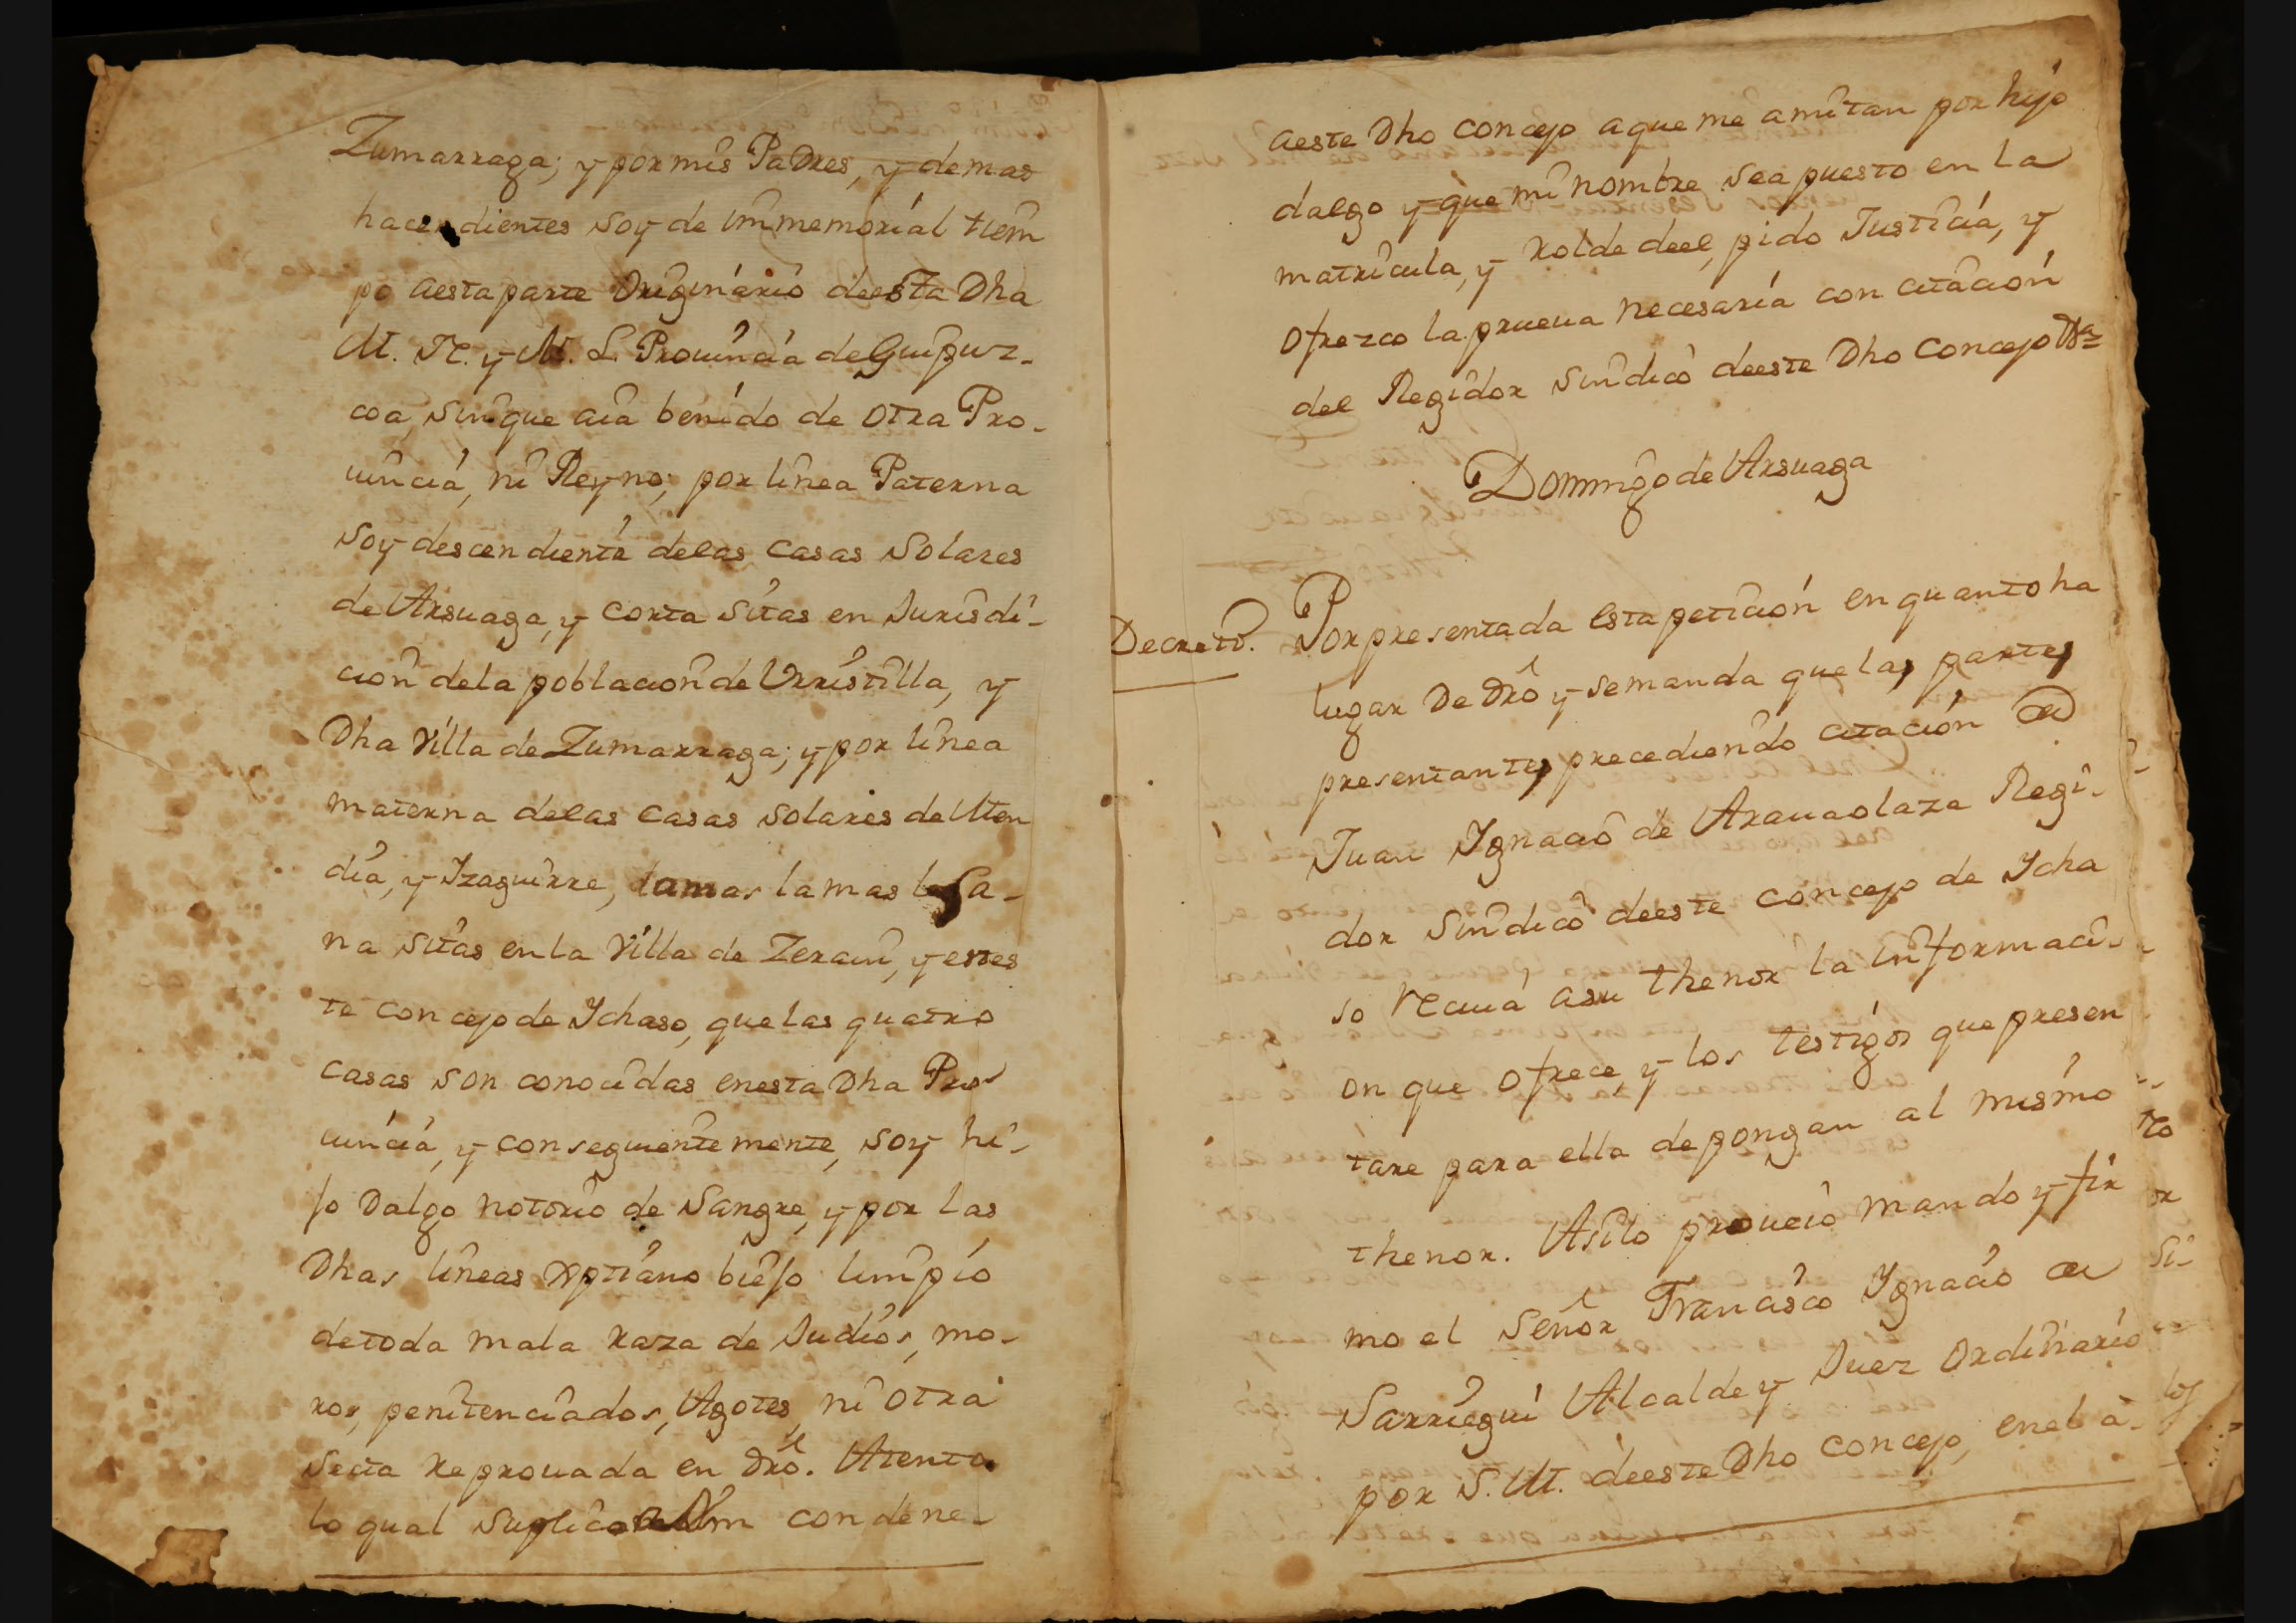 Zumarraga; y por mis Padres, y demas
hacendientes soy de immemorial tiem
po aesta parte Originario deesta Dha
M. N. y M. L. Prouincia de Guipuz-
coa, sin que aia benido de otra Pro-
uincia, ni Reyno; por linea Paterna
soy descendiente delas casas solares
de Arsuaga, y corta sitas en Jurisdi-
cion dela poblacion de Urristilla, y
Dha Villa de Zumarraga; y por linea
materna delas casas solares de Men
dia, y Izaguirre,
na sitas en la Villa de Zerain, y estes
te concejo de Ychaso, que las quatro
casas son conocidas enesta Dha Pro
uincia, y conseguientemente, soy hi-
jo Dalgo notorio de Sangre, y por las
Dhas lineas xptiano biejo limpio
detoda mala raza de Judios, mo-
ros, penitenciados, Agotes, ni otra
secta reprouada en dro. Atento
lo qual suplico a Vm condene-
aeste Dho concejo aque me amitan por hijo
dalgo y que mi nombre sea puesto en la
matricula, y rolde deel, pido Justicia, y
ofrezco la prueua necesaria con citacion
del Regidor sindico deeste Dho concejo
Domingo de Arsuaga
Decreto. Por presentada esta peticion en quanto ha
lugar De dro y se manda que las partes
presentantes precediendo citacion de
Juan Ygnacio de Arauaolaza Regi-
dor sindico deeste concejo de Ycha
so reciua asu thenor la informaci-
on que ofrece, y los testigos que presen
tare para ella depongan al mismo
thenor. Asilo proueio mando y fir
mo el Señor Francisco Ygnacio de
Sarriegui Alcalde y Juez Ordinario
por S. M. deeste Dho concejo, enel a-